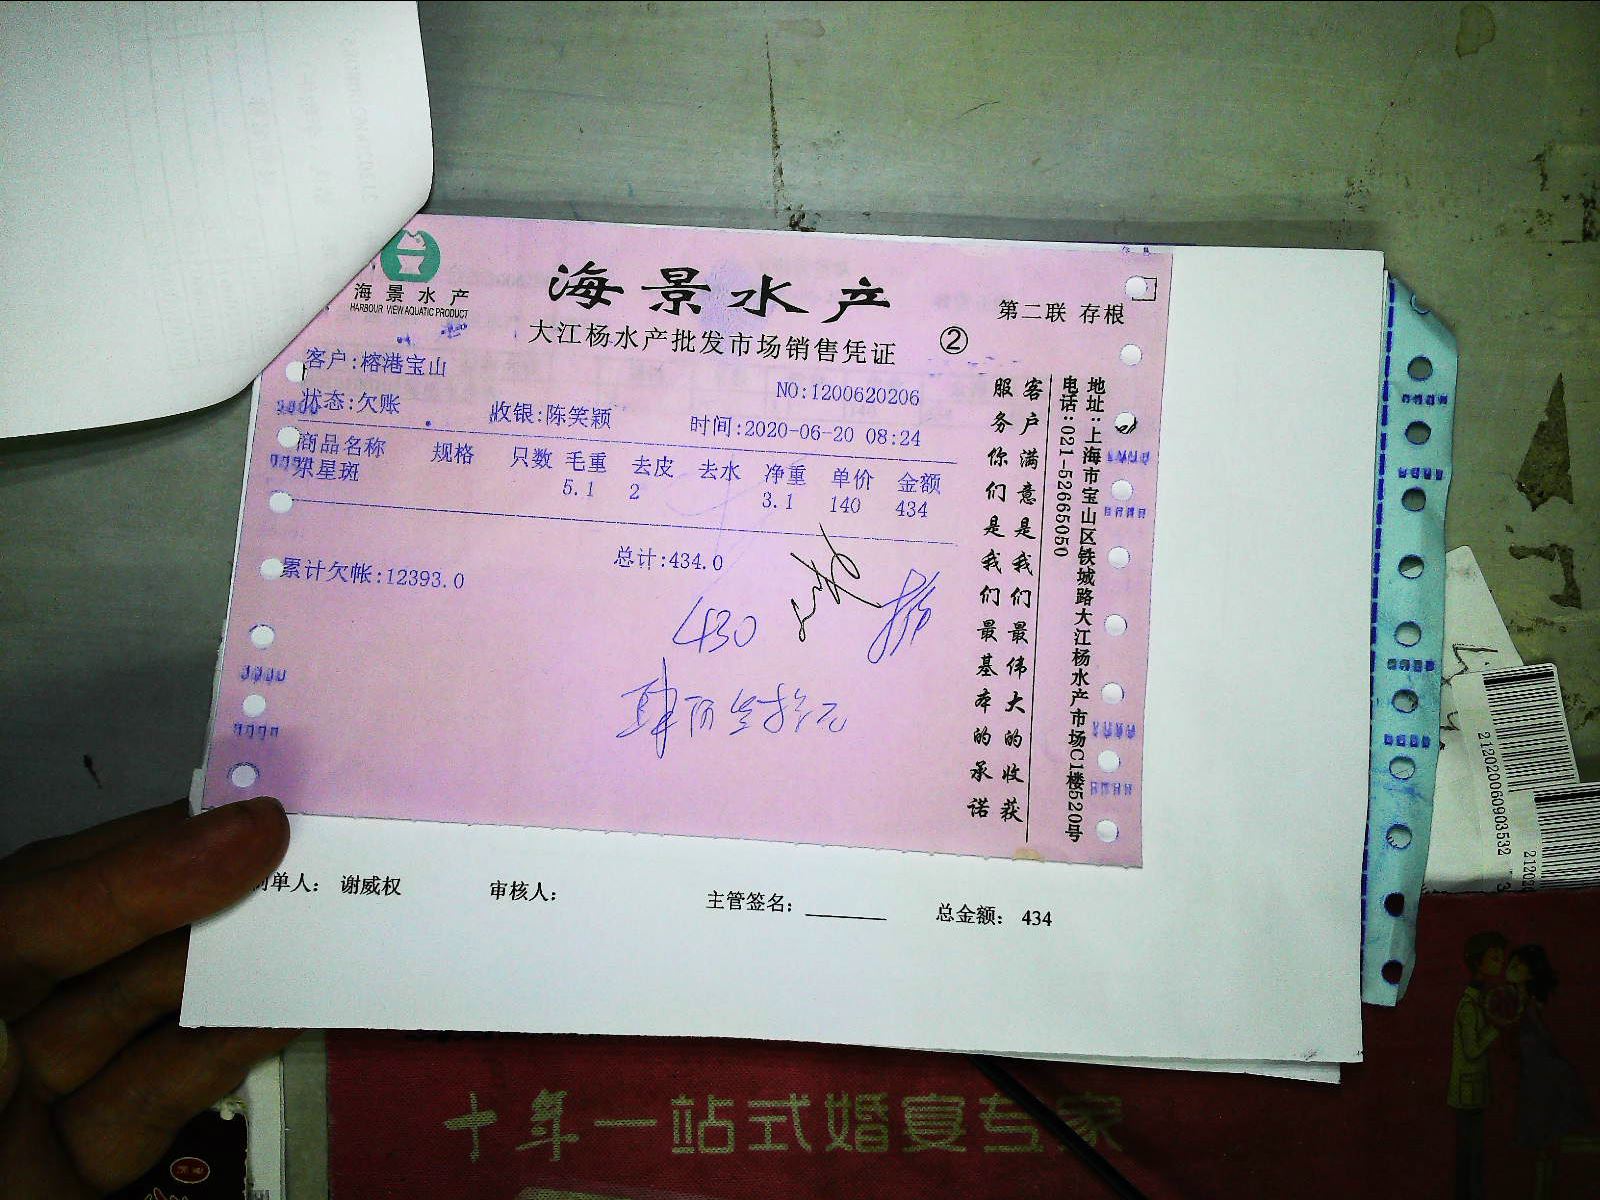 海景水产
HARBOUR VIEW AQUATIC PRODUCT
海景水产
大江杨水产批发市场销售凭证
②
第二联 存根
客户:榕港宝山
NO:1200620206
状态:欠账 收银:陈笑颖 时间:2020-06-20 08:24
商品名称 规格 只数 毛重 去皮 去水 净重 单价 金额
东星斑 5.1 2 3.1 140 434
总计:434.0
累计欠帐:12393.0
430
肆佰叁拾元
客户满意是我们最伟大的收获
服务你们是我们最基本的承诺
地址:上海市宝山区铁城路大江杨水产市场C1楼520号
电话:021-52665050
制单人: 谢威权 审核人: 主管签名: 总金额: 434
212020060903532
十年一站式婚宴专家